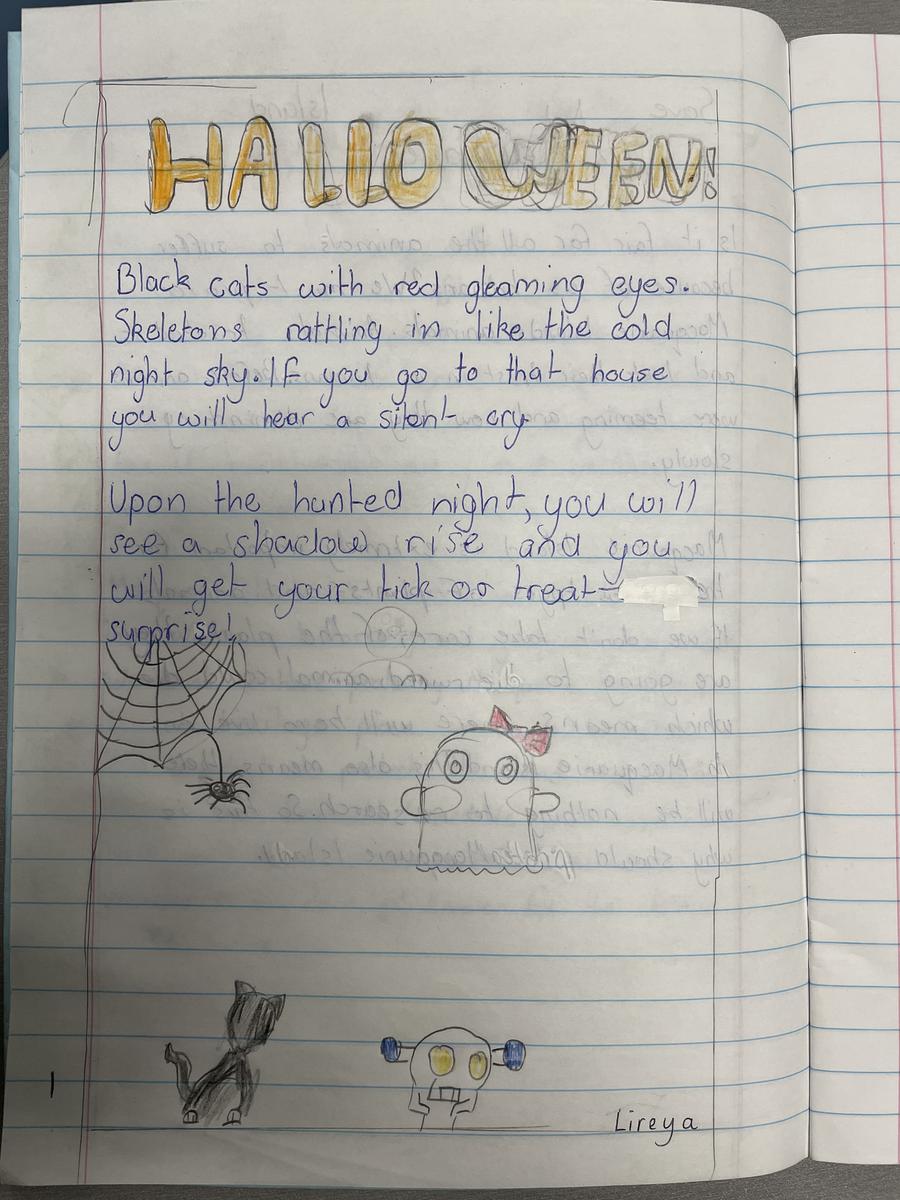 HALLOWEEN!
Black cats with red gleaming eyes.
Skeletons rattling in like the cold
night sky. If you go to that house
you will hear a silent cry.
Upon the hunted night, you will
see a shadow rise and you
will get your tick or treat
surprise!
Lireya